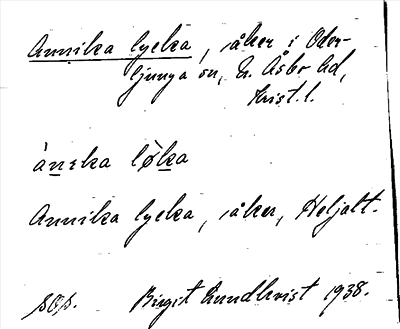 Annika lycka, åker i Oder-
ljunga sn, N. Åsbo hd,
Krist. l.
ànıka lø̀ka
Annika lycka, åker, Heljalt.
Birgit Lundkvist 1938.